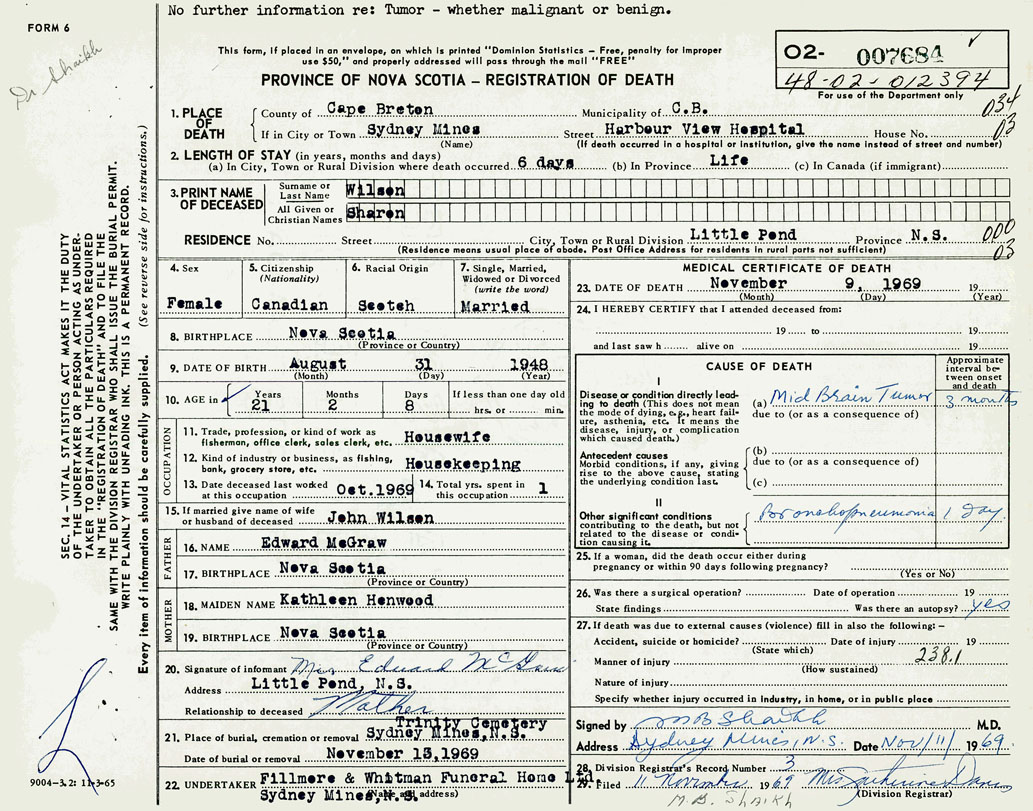 No further information re: Tumor - whether malignant or benign.
FORM 6
Dr Shaikh
This form, if placed in an envelope, on which is printed "Dominion Statistics – Free, penalty for improper
use $50," and properly addressed will pass through the mail "FREE"
PROVINCE OF NOVA SCOTIA – REGISTRATION OF DEATH
O2- 007684
48-02-012394
For use of the Department only
034
03
1. PLACE OF DEATH
County of Cape Breton Municipality of C.B.
If in City or Town Sydney Mines Street Harbour View Hospital House No.
(Name) (If death occurred in a hospital or institution, give the name instead of street and number)
2. LENGTH OF STAY (in years, months and days)
(a) In City, Town or Rural Division where death occurred 6 days (b) In Province Life (c) In Canada (if immigrant)
3. PRINT NAME OF DECEASED
Surname or Last Name Wilson
All Given or Christian Names Sharon
RESIDENCE No. Street City, Town or Rural Division Little Pond Province N.S.
(Residence means usual place of abode. Post Office Address for residents in rural parts not sufficient)
000
03
4. Sex
Female
5. Citizenship
(Nationality)
Canadian
6. Racial Origin
Scotch
7. Single, Married,
Widowed or Divorced
(write the word)
Married
8. BIRTHPLACE Nova Scotia
(Province or Country)
9. DATE OF BIRTH August 31 1948
(Month) (Day) (Year)
10. AGE in Years Months Days If less than one day old
21 2 8 hrs. or min.
OCCUPATION
11. Trade, profession, or kind of work as
fisherman, office clerk, sales clerk, etc. Housewife
12. Kind of industry or business, as fishing,
bank, grocery store, etc. Housekeeping
13. Date deceased last worked
at this occupation Oct.1969
14. Total yrs. spent in
this occupation 1
15. If married give name of wife
or husband of deceased John Wilson
FATHER
16. NAME Edward McGraw
17. BIRTHPLACE Nova Scotia
(Province or Country)
MOTHER
18. MAIDEN NAME Kathleen Henwood
19. BIRTHPLACE Nova Scotia
(Province or Country)
20. Signature of informant Mrs Edward McGraw
Address Little Pond, N.S.
Relationship to deceased Mother
Trinity Cemetery
21. Place of burial, cremation or removal Sydney Mines,N.S.
Date of burial or removal November 13,1969
22. UNDERTAKER Fillmore & Whitman Funeral Home Ltd.
Sydney Mines,N.S.
(Name and address)
MEDICAL CERTIFICATE OF DEATH
23. DATE OF DEATH November 9, 1969 19
(Month) (Day) (Year)
24. I HEREBY CERTIFY that I attended deceased from:
19 to 19
and last saw h alive on 19
CAUSE OF DEATH
Approximate
interval be-
tween onset
and death
I
Disease or condition directly lead-
ing to death (This does not mean
the mode of dying, e.g., heart fail-
ure, asthenia, etc. It means the
disease, injury, or complication
which caused death.)
(a) Mid Brain Tumor 3 months
due to (or as a consequence of)
Antecedent causes
Morbid conditions, if any, giving
rise to the above cause, stating
the underlying condition last.
(b)
due to (or as a consequence of)
(c)
II
Other significant conditions
contributing to the death, but not
related to the disease or condi-
tion causing it.
Bronchopneumonia 1 day
25. If a woman, did the death occur either during
pregnancy or within 90 days following pregnancy?
(Yes or No)
26. Was there a surgical operation? Date of operation 19
State findings Was there an autopsy? yes
27. If death was due to external causes (violence) fill in also the following: –
Accident, suicide or homicide? Date of injury 19
(State which)
238.1
Manner of injury
(How sustained)
Nature of injury
Specify whether injury occurred in Industry, in home, or in public place
Signed by M B Shaikh M.D.
Address Sydney Mines, N.S. Date Nov/11/ 1969.
28. Division Registrar's Record Number 3
29. Filed 11 November 1969 Mrs
(Division Registrar)
M.B. SHAIKH
SEC. 14 – VITAL STATISTICS ACT MAKES IT THE DUTY
OF THE UNDERTAKER OR PERSON ACTING AS UNDER-
TAKER TO OBTAIN ALL THE PARTICULARS REQUIRED
IN THE "REGISTRATION OF DEATH" AND TO FILE THE
SAME WITH THE DIVISION REGISTRAR WHO SHALL ISSUE THE BURIAL PERMIT.
WRITE PLAINLY WITH UNFADING INK. THIS IS A PERMANENT RECORD.
Every item of information should be carefully supplied. (See reverse side for instructions.)
9004-3.2: 11-3-65